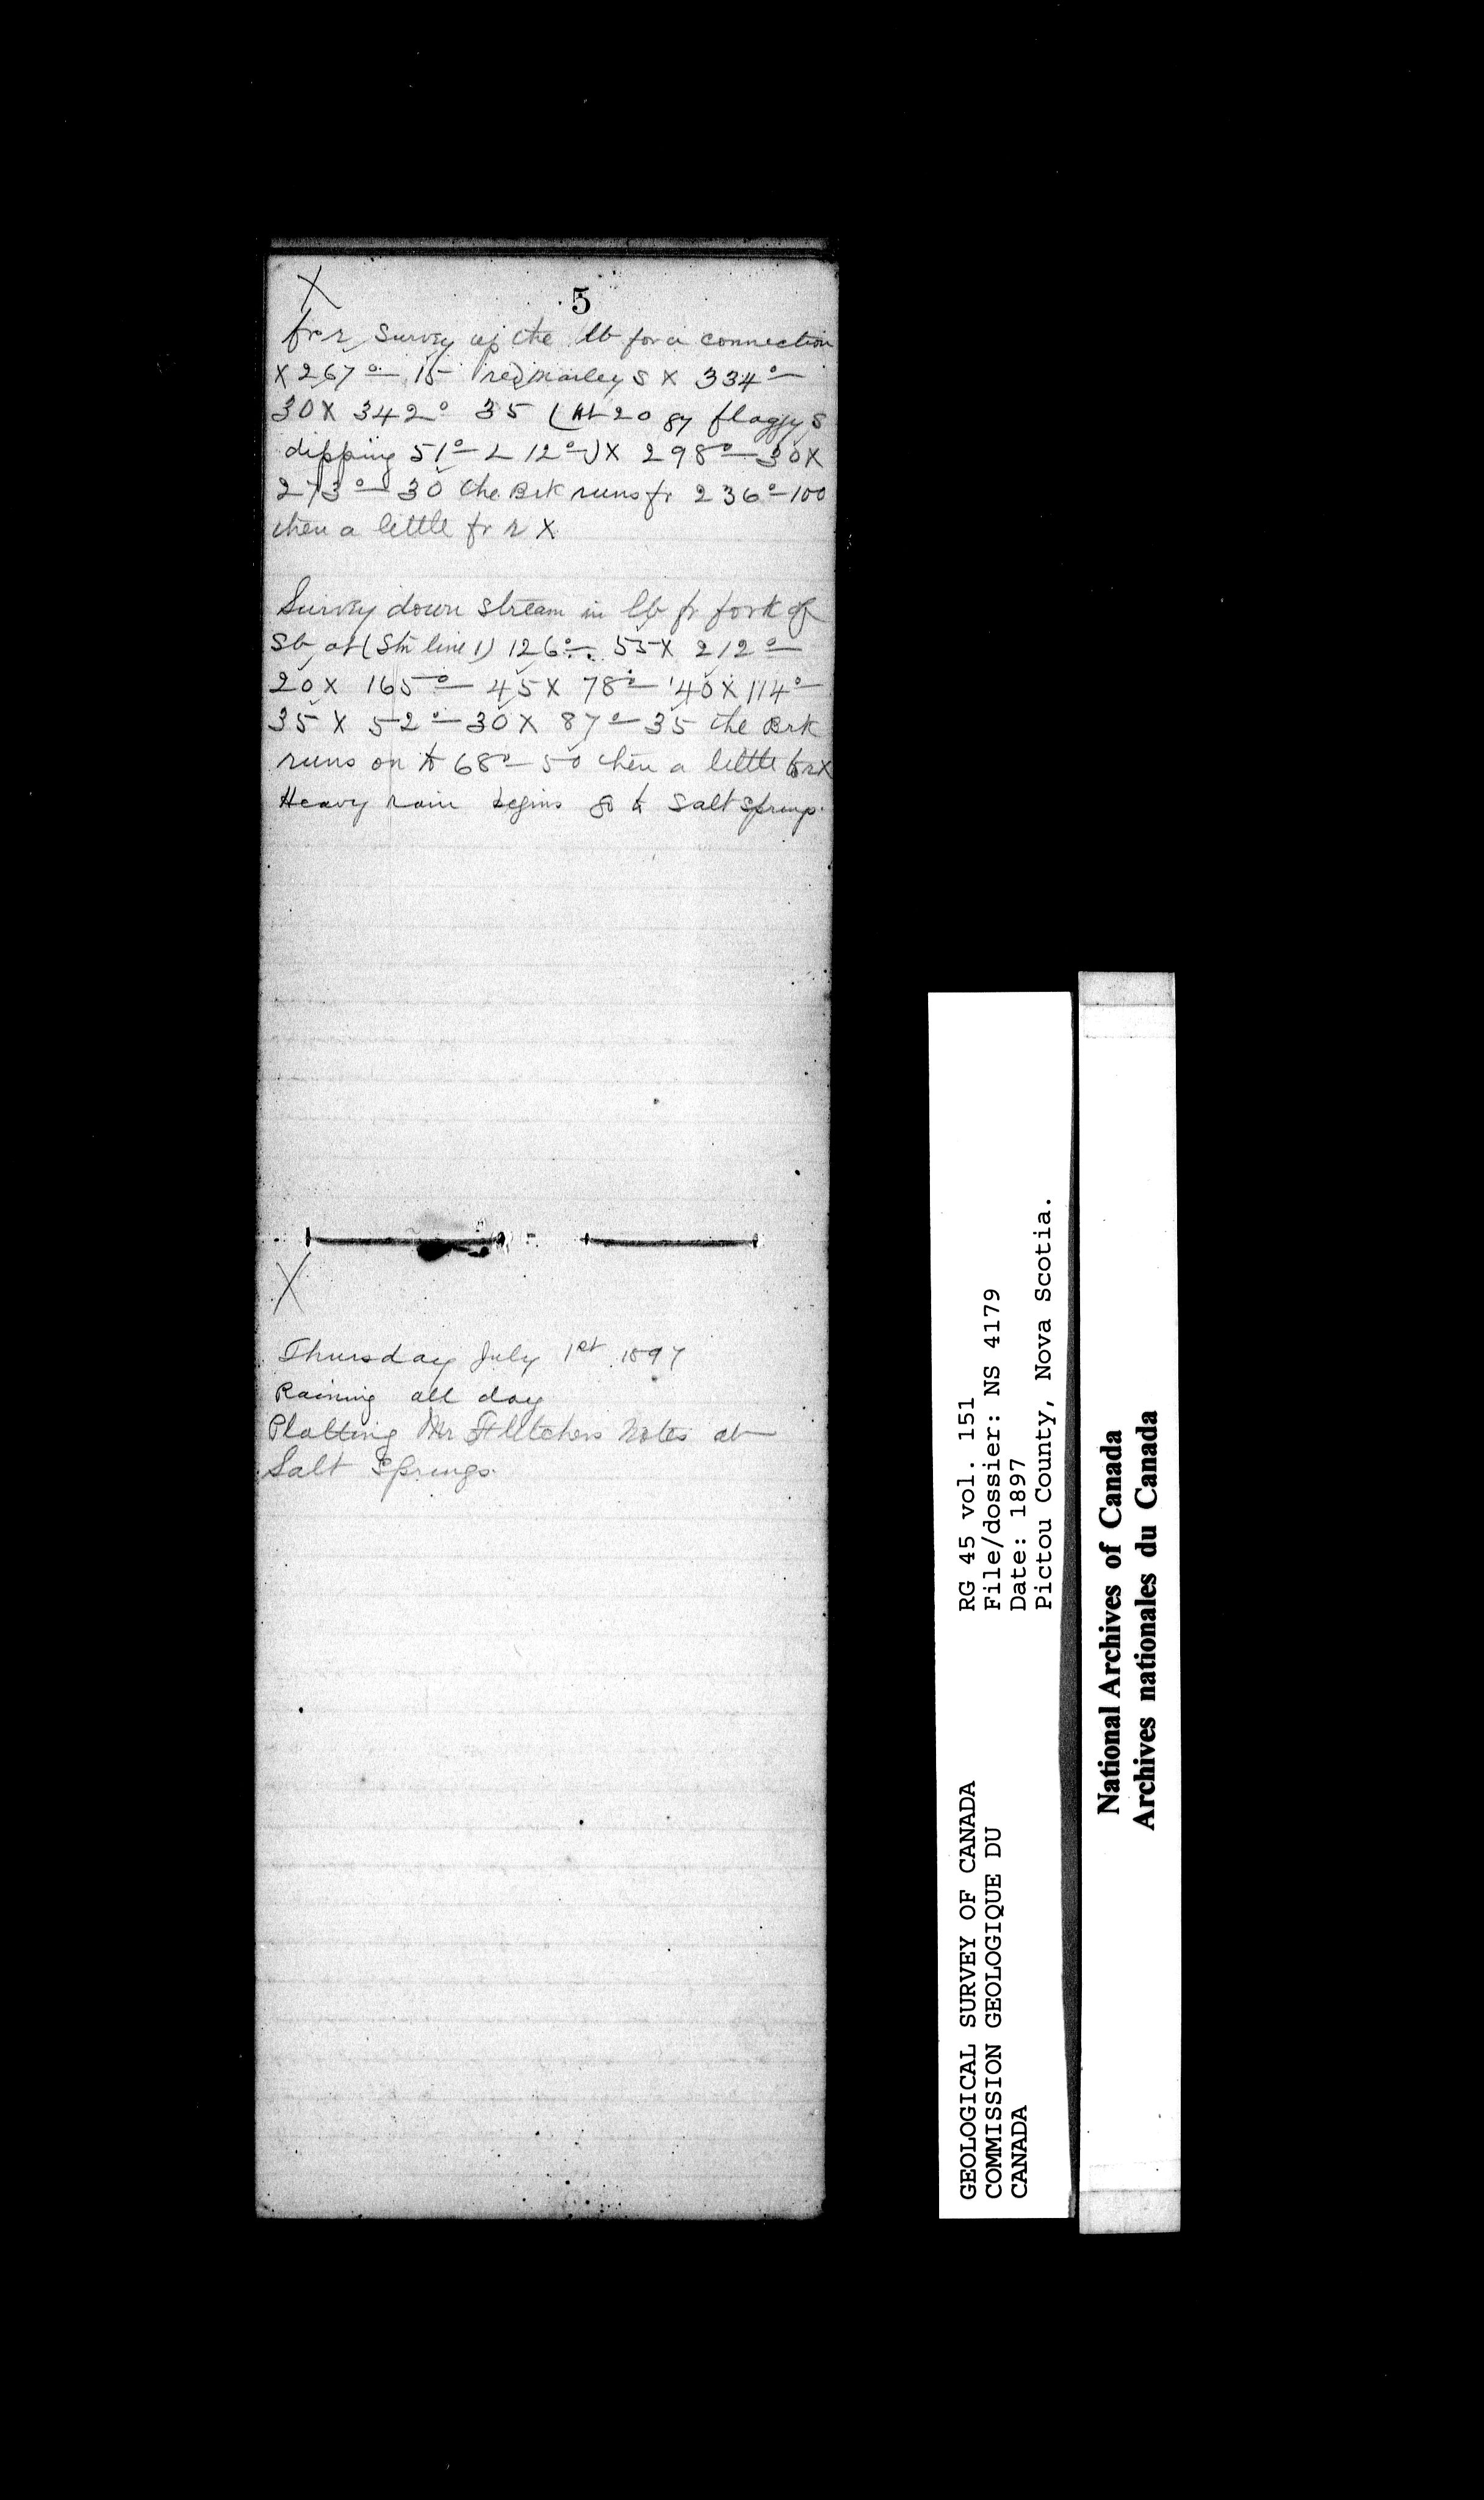 X
5
fr r, Survey up the lb for a connection
X 267° — 15 red marley S X 334° —
30 X 342° 35 (At 20 gy flaggy S
dipping 51° — L 12° —) X 298° — 30 X
273° — 30 the Brk runs fr 236° — 100
then a little fr r X
Survey down stream in lb fr fork of
Sb, at (Stn line 1) 126° — 55 X 212° —
20 X 165° — 45 X 78° — 40 X 114° —
35 X 52° — 30 X 87° — 35 the Brk
runs on to 68° — 50 then a little to r X
Heavy rain begins go to Salt Springs.
X
Thursday July 1st 1897
Raining all day
Platting Mr Fletchers Notes at
Salt Springs.
GEOLOGICAL SURVEY OF CANADA
COMMISSION GEOLOGIQUE DU
CANADA
RG 45 vol. 151
File/dossier: NS 4179
Date: 1897
Pictou County, Nova Scotia.
National Archives of Canada
Archives nationales du Canada